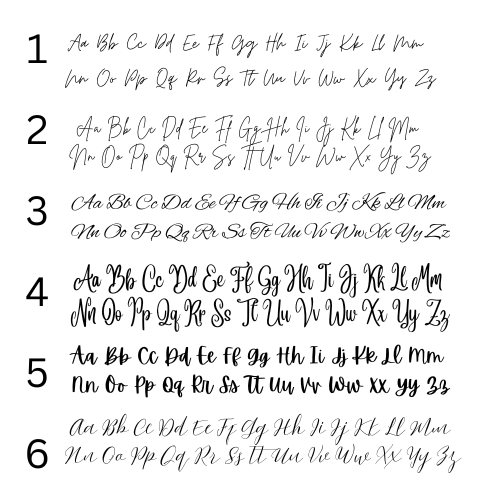 1 Aa Bb Cc Dd Ee Ff Gg Hh Ii Jj Kk Ll Mm
Nn Oo Pp Qq Rr Ss Tt Uu Vv Ww Xx Yy Zz
2 Aa Bb Cc Dd Ee Ff Gg Hh Ii Jj Kk Ll Mm
Nn Oo Pp Qq Rr Ss Tt Uu Vv Ww Xx Yy Zz
3 Aa Bb Cc Dd Ee Ff Gg Hh Ii Jj Kk Ll Mm
Nn Oo Pp Qq Rr Ss Tt Uu Vv Ww Xx Yy Zz
4 Aa Bb Cc Dd Ee Ff Gg Hh Ii Jj Kk Ll Mm
Nn Oo Pp Qq Rr Ss Tt Uu Vv Ww Xx Yy Zz
5 Aa Bb Cc Dd Ee Ff Gg Hh Ii Jj Kk Ll Mm
Nn Oo Pp Qq Rr Ss Tt Uu Vv Ww Xx Yy Zz
6 Aa Bb Cc Dd Ee Ff Gg Hh Ii Jj Kk Ll Mm
Nn Oo Pp Qq Rr Ss Tt Uu Vv Ww Xx Yy Zz